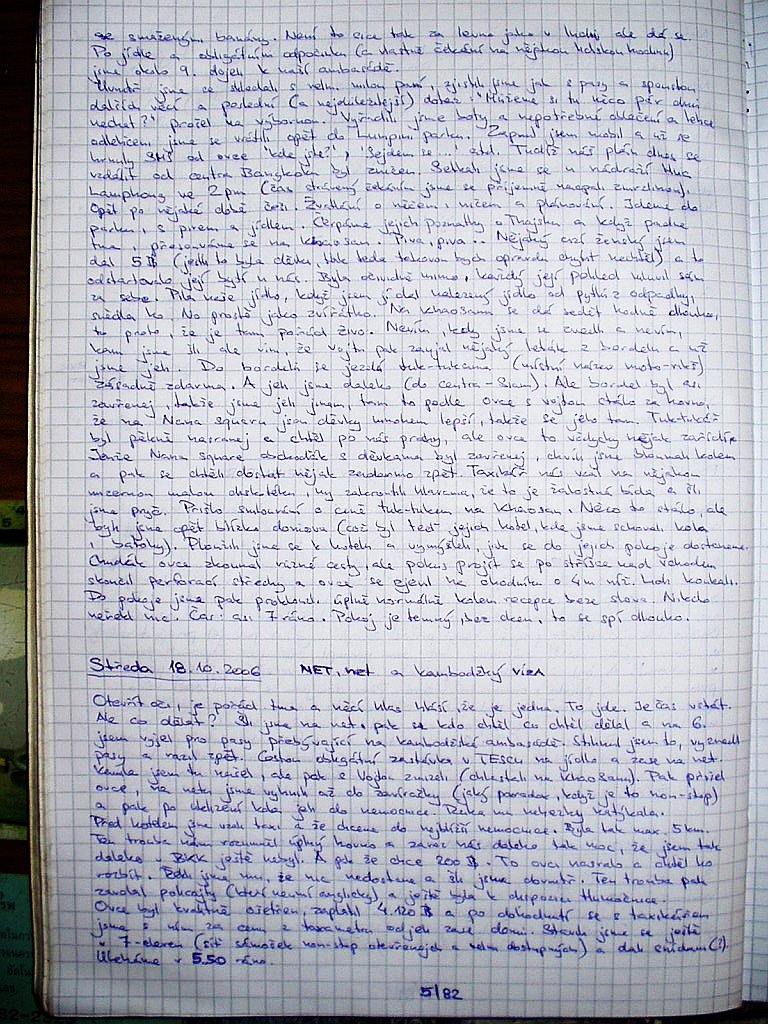 se smaženým banány. Není to sice tak za levno jako v Indii, ale dá se.
Po jídle a obligátním odpočinku (a vlastně čekání na nějakou lidskou hodinu)
jsme okolo 9. dojeli k naší ambasádě.
se shledali s velmi milou paní, zjistili jsme jak s pasy a spoustou
dalších věcí a poslední (a nejdůležitější) dotaz: "Můžeme si tu něco pár dnů
nechat?" prošel na výbornou. Vyřadili jsme boty a nepotřebné oblečení a lehce
odlehčeni jsme se vrátili opět do Lumpini parku. Zapnul jsem mobil a už se
hrnuly SMS od ovce "kde jste?", "Sejdem se..." atd. Tudíž náš plán dnes se
vzdálit od centra Bangkoku byl zničen. Setkali jsme se u nádraží Hua
Lamphong ve 2 pm (čas strávený čekáním jsme se příjemně
Opět po nějaké době češi. Žvatlání o něčem, ničem a plánování. Jdeme do
parku, s pivem a jídlem. Čerpáme jejich poznatky o Thajsku a když padne
tma, přesouváme se na Khaosan. Piva, piva.. Nějaký ženský jsem
dal 5 ฿ (jestli to byla děvka, tak teda takovou bych opravdu chytit nechtěl) a to
odstartovalo její bytí u nás. Byla očividně mimo, každý její pohled mluvil sám
za sebe. Pila naše jídlo, když jsem jí dal nalezený jídlo od pytlů z odpadky,
snědla ho. No prostě jako zvířátko. Na khaosanu se dá sedět hodně dlouho,
to proto, že je tam pořád živo. Nevím, kdy jsme se zvedli a nevím,
kam jsme šli ale vím, že Vojta pak zavyl nějaký lehák z bordelu a už
jsme jeli. Do bordelů se jezdí tuk-tukama (místní název moto-rikš)
zásadně zdarma. A jeli jsme daleko (do centra - Siam). Ale bordel byl asi
zavřenej, takže jsme jeli jinam, tam to podle ovce s Vojtou stálo za hovno,
že na Nana squaru jsou děvky mnohem lepší, takže se jelo tam. Tuk-tukář
byl pěkně nasranej a chtěl po nás prachy, ale ovce to vždycky nějak zařídí.
Jenže Nana square obchoďák s děvkama byl zavřenej, chvíli jsme bloumali kolem
a pak se chtěli dostat nějak zadarmo zpět. Taxikář nás vzal na nějakou
mizernou malou diskotéku, my zakroutili hlavama, že to je žalostná bída a šli
jsme pryč. Přišlo smlouvání o ceně tuk-tukem na Khaosan. Něco to stálo, ale
byli jsme opět blízko domova (což byl teď jejich hotel, kde jsme schovali kola
i batohy). Ploužili jsme se k hotelu a vymýšleli, jak se do jejich pokoje dostaneme.
Chudák ovce zkoumal různé cesty, ale pokus projít se po stříšce nad vchodem
skončil perforací střechy a ovce se ejevil na chodníku o 4m níž. Lidi koukali.
Do pokoje jsme pak proklouzli úplně normálně kolem recepce beze slova. Nikdo
neřekl nic. Čas: asi 7 ráno. Pokoj je temný, bez oken, to se spí dlouho.
Středa 18.10.2006 NET, net a kambodžský víza
Otevřít oči, je pořád tma a něčí hlas hlásí, že je jedna. To jde. Je čas vstát.
Ale co dělat? Šli jsme na net a pak se kdo chtěl co chtěl dělal a na 6.
jsem vyjel pro pasy přebývající na kambodžské ambasádě. Stihnul jsem to, vyzvedl
pasy a razil zpět. Cestou obligátní zastávka v TESCU na jídlo a zase na net.
jsem tu našel, ale pak s Vojtou zmizeli (chlastali na Khaosanu). Pak přišel
ovce, na netu jsme vytuhli až do zavíračky (jaký paradox, když je to non-stop)
a pak po ulezení kola jeli do nemocnice. Ruka mu nehezky natýkala.
Před hotelem jsme vzali taxi a že chceme do nejbližší nemocnice. Byla tak max. 5km.
Ten trouba nám rozuměl úplný hovno a zavez nás daleko tak moc, že jsem tak
daleko v BKK ještě nebyl. A pak že chce 200 ฿. To ovci nasralo a chtěl ho
rozbít. Řekli jsme mu, že nic nedostane a šli jsme dovnitř. Ten trouba pak
zavolal policajty (kteří neumí anglicky) a ještě byla k dispozici tlumočnice.
Ovce byl kvalitně ošetřen, zaplatil 4.120 ฿ a po dohodnutí se s taxikářem
jsme s ním za cenu z taxametru odjeli zase domů. Stavili jsme se ještě
v 7-eleven (síť sámošek non-stop otevřených a velmi dostupných) a dali snídani(?).
Uleháme v 5.50 ráno.
5/82